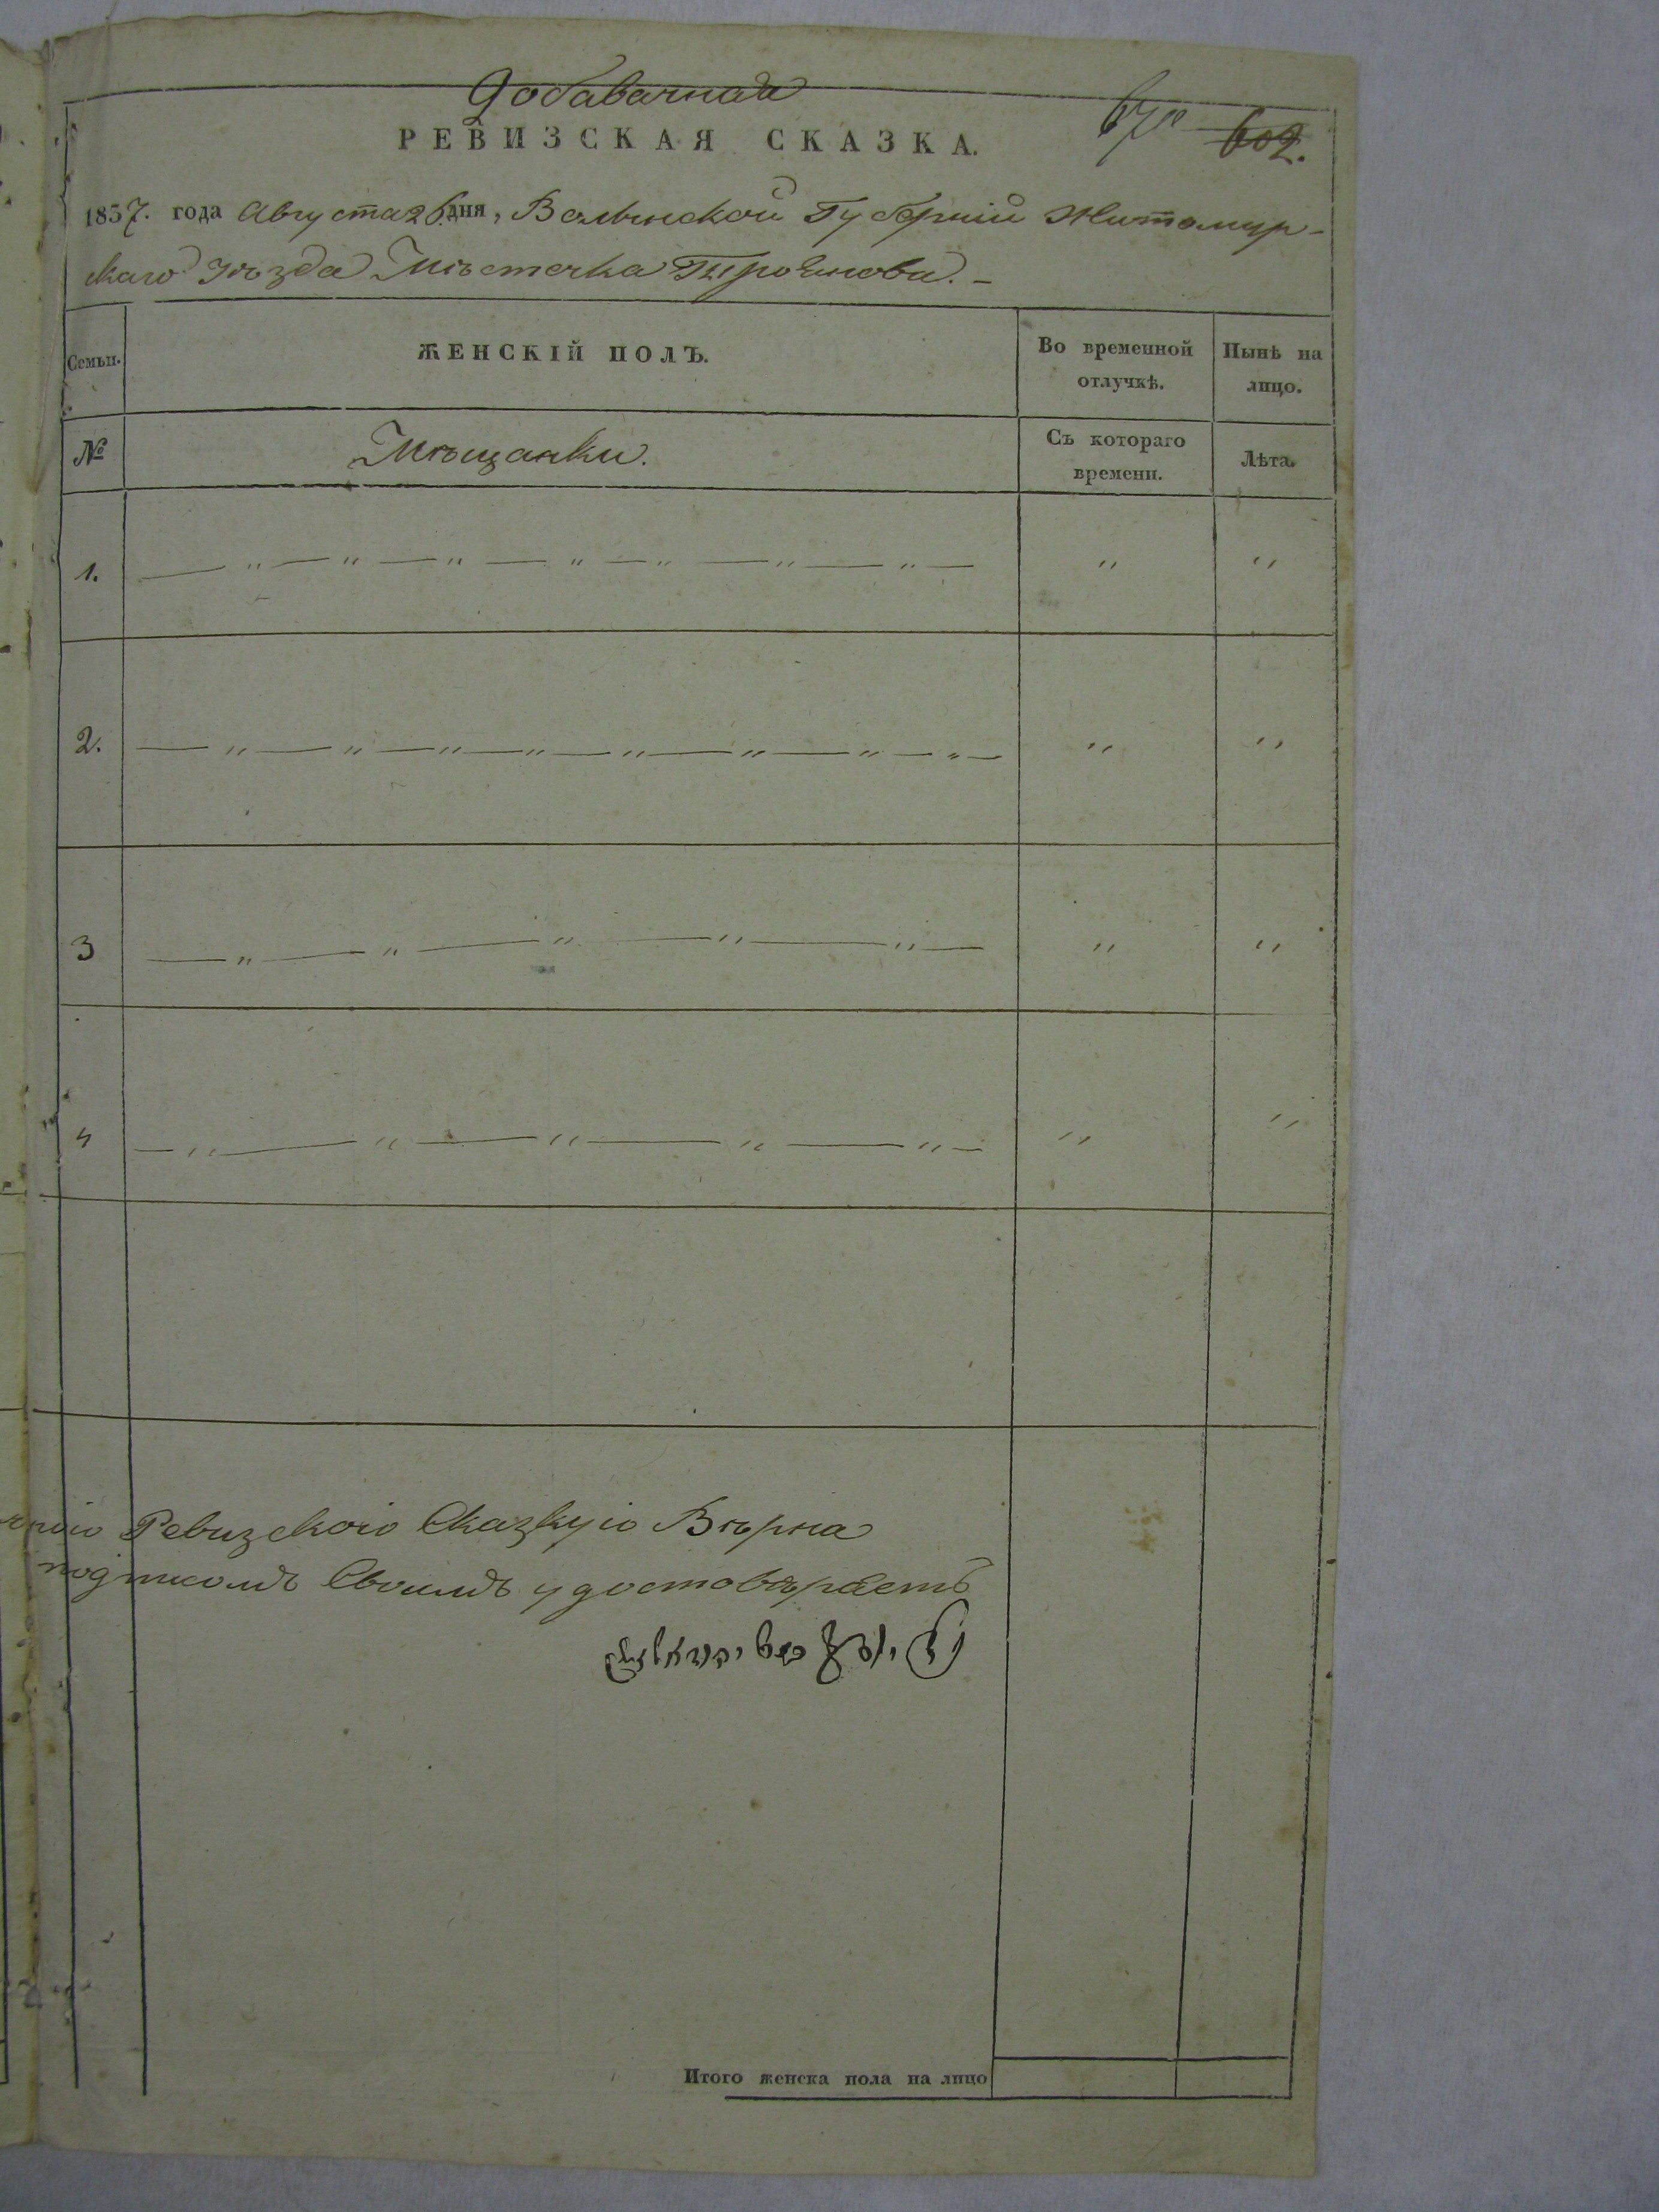 Добавачная
РЕВИЗСКАЯ СКАЗКА.
602.
1857. года Августа 26 дня, Волынской Губерніи Житомир-
скаго Уѣзда Мѣстечка Троянова. –
Семьи.
ЖЕНСКІЙ ПОЛЪ.
Во временной
отлучкѣ.
Нынѣ на
лицо.
№
Мѣщанки.
Съ котораго
времени.
Лѣта.
1. — „ — „ — „ — „ — „ — „ — „ — „ „
2. — „ — „ — „ — „ — „ — „ — „ — „ — „ „
3 — „ — „ — „ — „ — „ — „ „
4 — „ — „ — „ — „ — „ — „ „
Ревизскою Сказкую Вѣрна
подписомъ Своимъ удостовѣряетъ
Итого женска пола на лицо